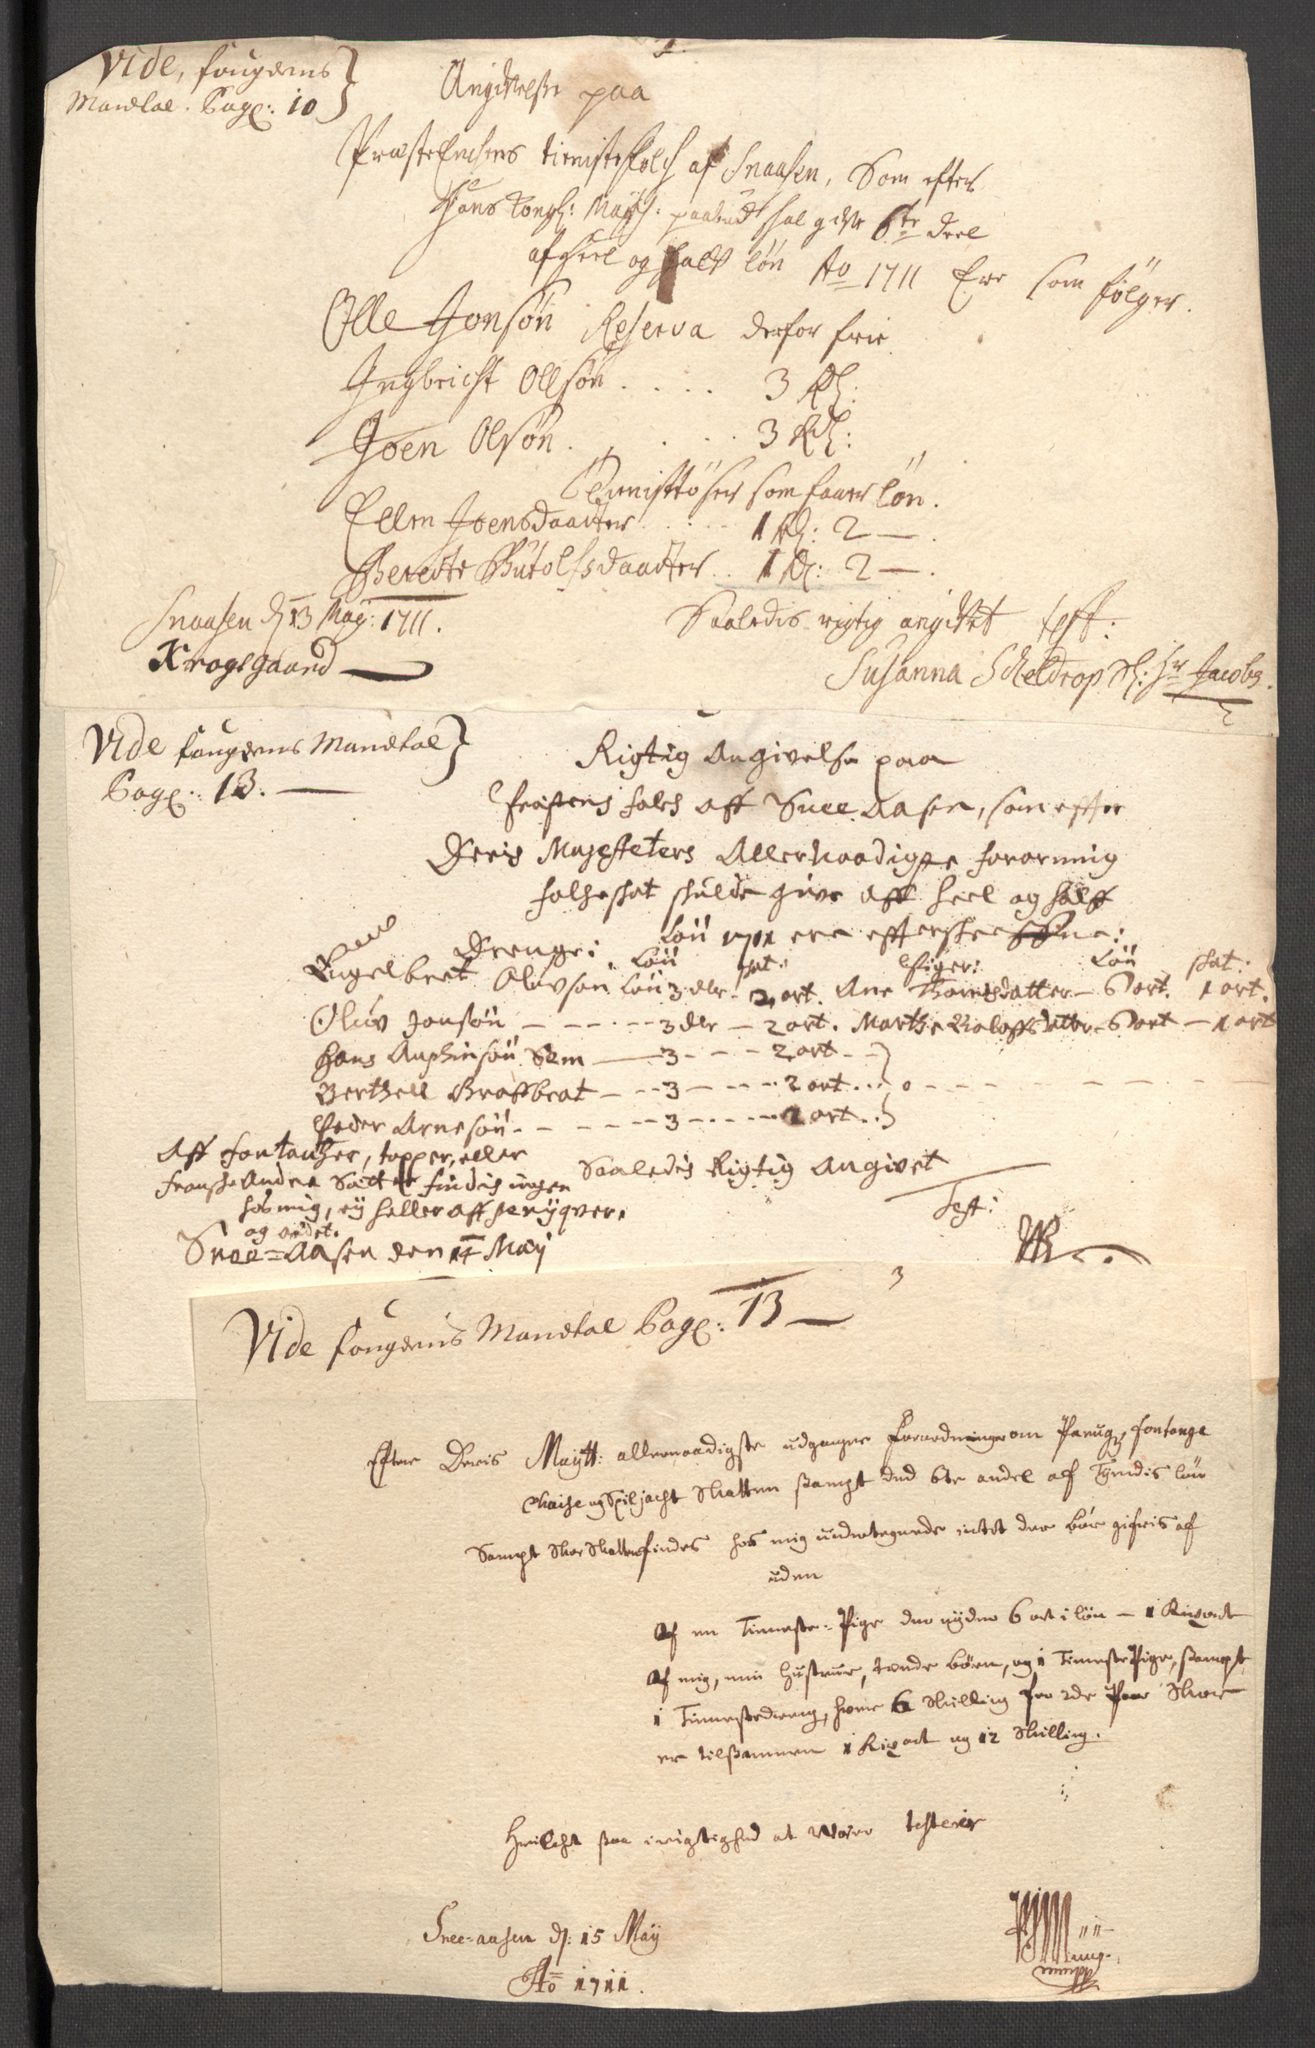 Vide, fougdens
Mandtal. Pag: 10
Angivelse paa
Præste Enchens tieniste folch af Snaasen, Som efter
Hans Kongl: Mayts: paabud skal gifve 6te deel
af heel og halv løn Ao 1711 Ere som følger.
Olle Jonsøn Reserva derfor frie
Ingbricht Ollsøn . . . . 3 Rd:
Joen Olsøn . . . . 3 Rd:
Tienisttøser som faaer løn.
Ellen Joensdaatter . . . 1 Rd: 2 —.
Berette Butolfsdaatter . . 1 Rd: 2 —.
Snaasen d 13 May: 1711.
Krogsgaard
Saaledis rigtig angivet test:
Susanna Scheldrop Sl: Hr Jacobs.
Vide fougdens Mandtal
Pag: 13. —
Rigtig Angivelse paa
Præstens folch aff Snee Aasen, som efter
Deris Majesteters Allernaadigste fororning
folcheskat skulde give aff heel og halff
Løn 1711 ere effterskrefne:
Drenge: Løn skat: Piger: Løn skat:
Engelbret Olavson Løn 3 dlr - 2 ort. Ane Thomesdatter - 6 ort. 1 ort.
Oluv Jonsøn - - - - - 3 dlr - 2 ort. Marthe Roloffsdatter - 6 ort - 1 ort
Hans Anphinsøn Sem - 3 - - - - 2 ort - -
Berthell Braffbrat - - - 3 - - - - 2 ort . . . o - - -
Peder Arnesøn - - - - - 3 - - - - 2 ort . .
Aff fontanger, topper, eller
franske Andre Sætter findis ingen
hos mig, ey heller aff peryqver.
og andet.
Saaledis Rigtig Angivet
Test:
Snee-Aasen den 14 May
3
Vide fougdens Mandtal Pag: 13 —
Efter Deris Maytt: allernaadigste udgangne Forordninger om Paruq, fontange
Chaise og Spiljacht Skatten sampt ded 6te andel af Tyendis løn
Sampt Skoe Skatten findes hos mig undertegnede intet der bør gifvis af
uden
Af en Tieneste-Pige der nyder 6 ort i løn - 1 Rixort
Af mig, min Hustrue, tvende børn, og 1 Tieneste Pige, sampt
1 Tienestedreng, hver 6 Skilling for 2de Par Skoe
er tilsammen 1 Rixort og 12 Skilling.
Hvilchet saa i rigtighed at være testerer
Snee-aasen d: 15 May
Ao 1711.